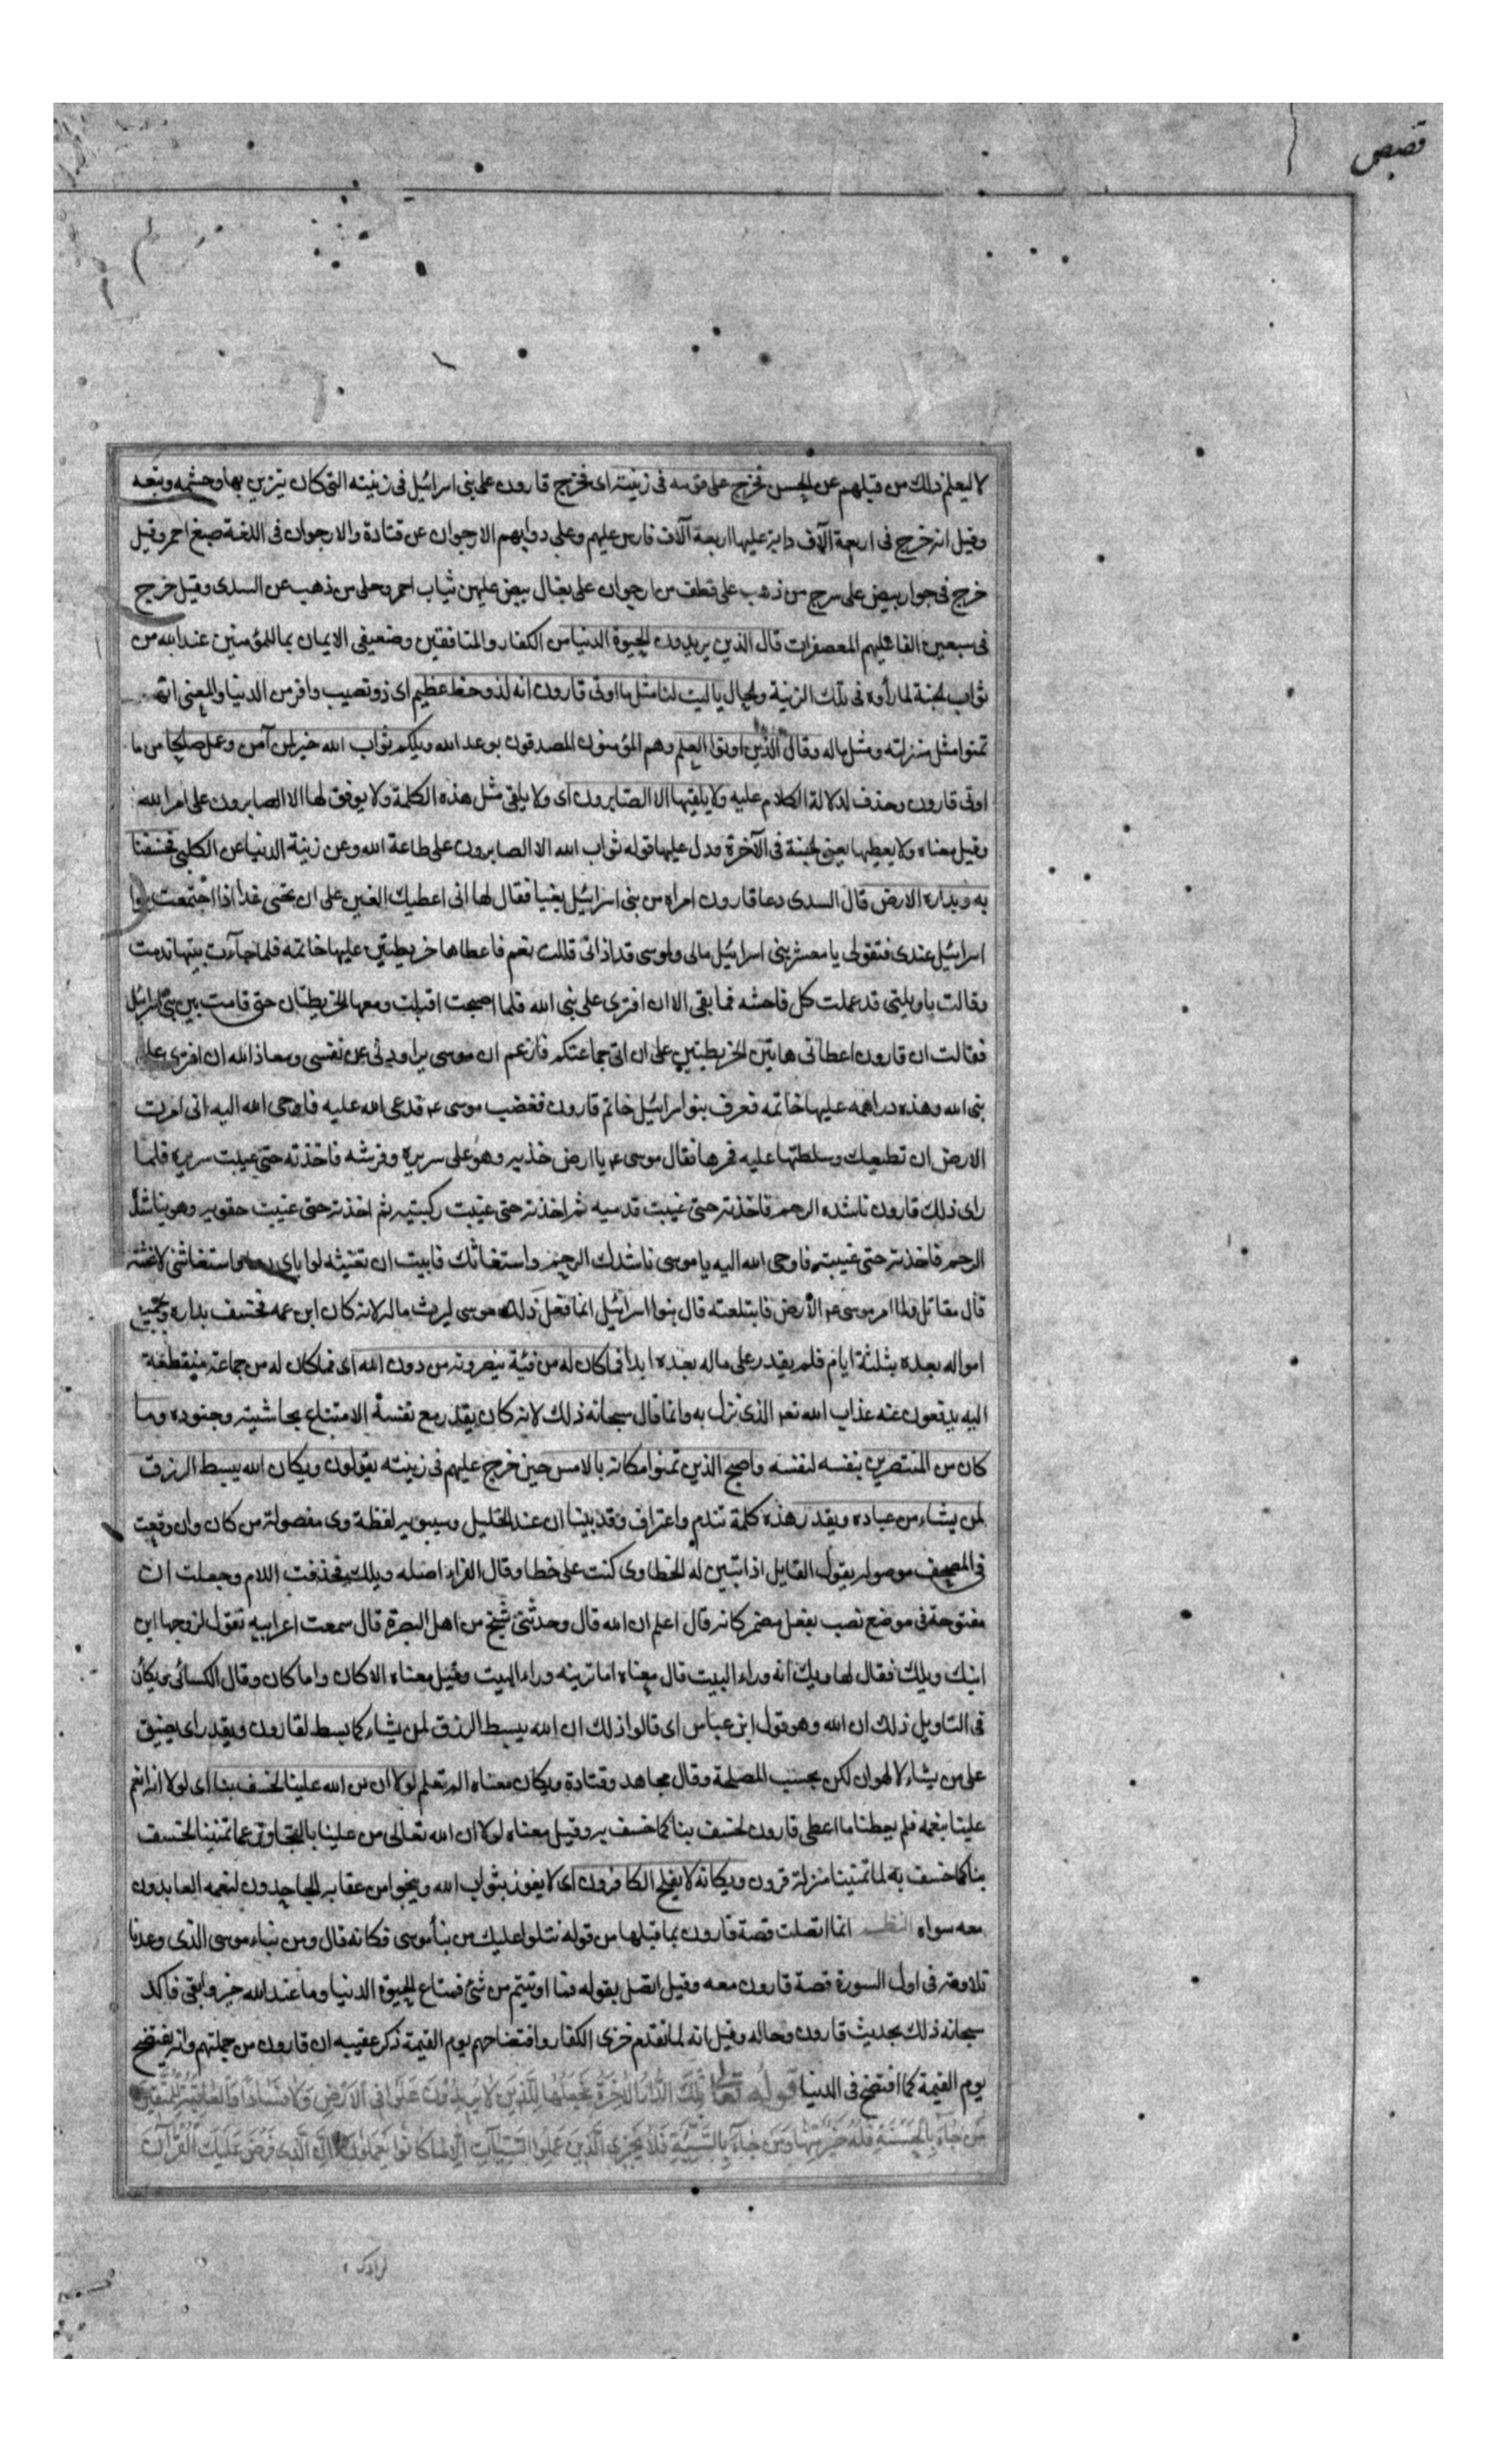 قصص
لا ليعلم ذلك من قبلهم عن الحسن فخرج على قومه فى زينته اى فخرج قارون على بنى اسرائيل فى زينته التى كان يتزين بها وحشمه وتبعه
وقيل انه خرج فى اربعة آلاف دابة عليها اربعة آلاف فارس عليهم وعلى دوابهم الارجوان عن قتادة والارجوان فى اللغة صبغ احمر وقيل
خرج فى جوار بيض على سرج من ذهب على قطف من ارجوان على بغال بيض عليهن ثياب احمر وحلى من ذهب عن السدى وقيل خرج
فى سبعين الفا عليهم المعصفرات قال الذين يريدون الحيوة الدنيا من الكفار والمنافقين وضعيفى الايمان بما للمؤمنين عند الله من
ثواب الجنة لما رأوه فى تلك الزينة والجمال ياليت لنا مثل ما اوتى قارون انه لذو حظ عظيم اى ذو نصيب وافر من الدنيا والمعنى انهم
تمنوا مثل منزلته ومثل ماله وقال الذين اوتوا العلم وهم المؤمنون المصدقون بوعد الله ويلكم ثواب الله خير لمن آمن وعمل صالحا من ما
اوتى قارون وحذف لدلالة الكلام عليه ولا يلقيها الا الصابرون اى ولا يلقى مثل هذه الكلمة ولا يوفق لها الا الصابرون على امر الله
وقيل معناه ولا يعطيها يعنى الجنة فى الآخرة ودل عليها قوله ثواب الله الا الصابرون على طاعة الله وعن زينة الدنيا عن الكلبى فخسفنا
به وبداره الارض قال السدى دعا قارون امراه من بنى اسرائيل بغيا فقال لها انى اعطيك الفين على ان تجئى غدا اذا اجتمعت بنوا
اسرائيل عندى فتقولى يا معشر بنى اسرائيل مالى ولموسى قد اذانى قالت نعم فاعطاها خريطتين عليها خاتمه فلما جاءت بيتها ندمت
وقالت ياويلتى قد عملت كل فاحشه فما بقى الا ان افترى على نبى الله فلما اصبحت اقبلت ومعها الخريطتان حتى قامت بين بنى اسرائيل
فقالت ان قارون اعطانى هاتين الخريطتين على ان اتى جماعتكم فازعم ان موسى يراودنى عن نفسى ومعاذ الله ان افترى على
نبى الله وهذه دراهمه عليها خاتمه فعرف بنوا اسرائيل خاتم قارون فغضب موسى عم فدعى الله عليه فاوحى الله اليه انى امرت
الارض ان تطيعك وسلطتها عليه فمرها فقال موسى عم يا ارض خذيه وهو على سريره وفرشه فاخذته حتى غيبت سريره فلما
راى ذلك قارون ناشده الرحم فاخذته حتى غيبت قدميه ثم اخذته حتى غيبت ركبتيه ثم اخذته حتى غيبت حقويه وهو يناشد
الرحم فاخذته حتى غيبته فاوحى الله اليه يا موسى ناشدك الرحم واستغاثك فابيت ان تغيثه لو اياى واستغاثنى لاغثته
قال مقاتل ولما امر موسى عم الارض فابتلعته قال بنوا اسرائيل انما فعل ذلك موسى ليرث ماله لانه كان ابن عمه فخسف بداره وبجميع
امواله بعده بثلثة ايام فلم يقدر على ماله بعده ابدا فما كان له من فئة ينصرونه من دون الله اى فما كان له من جماعة منقطعة
اليه يدفعون عنه عذاب الله تعم الذى نزل به وانما قال سبحانه ذلك لانه كان يقدر مع نفسه الامتناع بحاشيته وجنوده وما
كان من المنتصرين بنفسه لنفسه واصبح الذين تمنوا مكانه بالامس حين خرج عليهم فى زينته يقولون ويكان الله يبسط الرزق
لمن يشاء من عباده ويقدر هذه كلمة تندم واعتراف وقد بينا ان عند الخليل وسيبويه لفظة وى مفصولة من كان وان وقعت
فى المصحف موصوله يقول القايل اذا تبين له الخطا وى كنت على خطا وقال الفراء اصله ويلك فحذفت اللام وجعلت ان
مفتوحة فى موضع نصب بفعل مضمر كانه قال اعلم ان الله قال وحدثنى شيخ من اهل البصرة قال سمعت اعرابيه تقول لزوجها اين
ابنك ويلك فقال لها ويك انه وراء البيت قال معناه اما ترينه وراء البيت وقيل معناه الا كان واما كان وقال الكسائى ويكأن
فى التاويل ذلك ان الله وهو قول ابن عباس اى قالوا ذلك ان الله يبسط الرزق لمن يشاء كما يبسط لقارون ويقدر اى يضيق
على من يشاء لا لهوان لكن بحسب المصلحة وقال مجاهد وقتادة ويكان معناه الم تعلم لولا ان من الله علينا لخسف بنا اى لولا انه انعم
علينا بنعمه فلم يعطنا ما اعطى قارون لخسف بنا كما خسف به وقيل معناه لولا ان الله تعالى من علينا بالتجاوز عما تمنينا لخسف
بنا كما خسف به لما تمنينا منزلة قرون ويكانه لا يفلح الكافرون اى لا يفوز بثواب الله وينجوا من عقابه الجاحدون لنعمه العابدون
معه سواه النظم انما اتصلت قصة قارون بما قبلها من قوله نتلوا عليك من نبأ موسى فكانه قال ومن نباء موسى الذى وعدنا
تلاوته فى اول السورة قصة قارون معه وقيل اتصل بقوله فما اوتيتم من شئ فمتاع الحيوة الدنيا وما عند الله خير وابقى فاكد
سبحانه ذلك بحديث قارون وحاله وقيل انه لما تقدم خزى الكفار وافتضاحهم يوم القيمة ذكر عقيبه ان قارون من جملتهم وانه يفتضح
يوم القيمة كما افتضح فى الدنيا قوله تعالى تِلْكَ الدَّارُ الْآخِرَةُ نَجْعَلُهَا لِلَّذِينَ لَا يُرِيدُونَ عُلُوًّا فِي الْأَرْضِ وَلَا فَسَادًا وَالْعَاقِبَةُ لِلْمُتَّقِينَ
مَنْ جَاءَ بِالْحَسَنَةِ فَلَهُ خَيْرٌ مِنْهَا وَمَنْ جَاءَ بِالسَّيِّئَةِ فَلَا يُجْزَى الَّذِينَ عَمِلُوا السَّيِّئَاتِ إِلَّا مَا كَانُوا يَعْمَلُونَ إِنَّ الَّذِي فَرَضَ عَلَيْكَ الْقُرْآنَ
لرادك